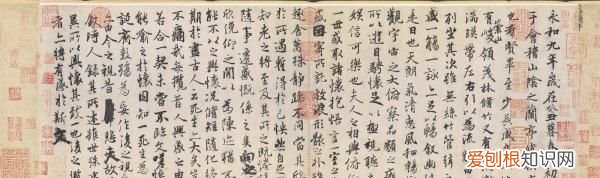 永和九年歲在癸丑暮春之初
于會稽山陰之蘭亭
也群賢畢至少長咸
有崇山峻領茂林脩竹又有清
湍暎帶左右引以為流
列坐其次雖無絲竹管弦
盛一觴一詠亦足以暢敘幽
是日也天朗氣清惠風和暢
觀宇宙之大俯察品類之盛
所以遊目騁懷足以極視聽
娛信可樂也夫人之相與俯
一世或取諸懷抱悟言一室之
或因寄所託放浪形骸之外
趣舍萬殊靜躁不同當其欣
於所遇蹔得於己怏然自足
知老之將至及其所之既惓
隨事遷感慨係之矣向之
欣俛仰之閒以為陳迹猶不
能不以之興懷況脩短隨化終
期於盡古人云死生亦大矣豈
不痛哉每攬昔人興感之由
若合一契未嘗不臨文嗟悼
能喻之於懷固知一死生為
誕齊彭殤為妄作後之視今
亦由今之視昔悲夫故列
敘時人錄其所述雖世殊事
異所以興懷其致一也後之攬
者亦將有感於斯文
爱刨根知识网